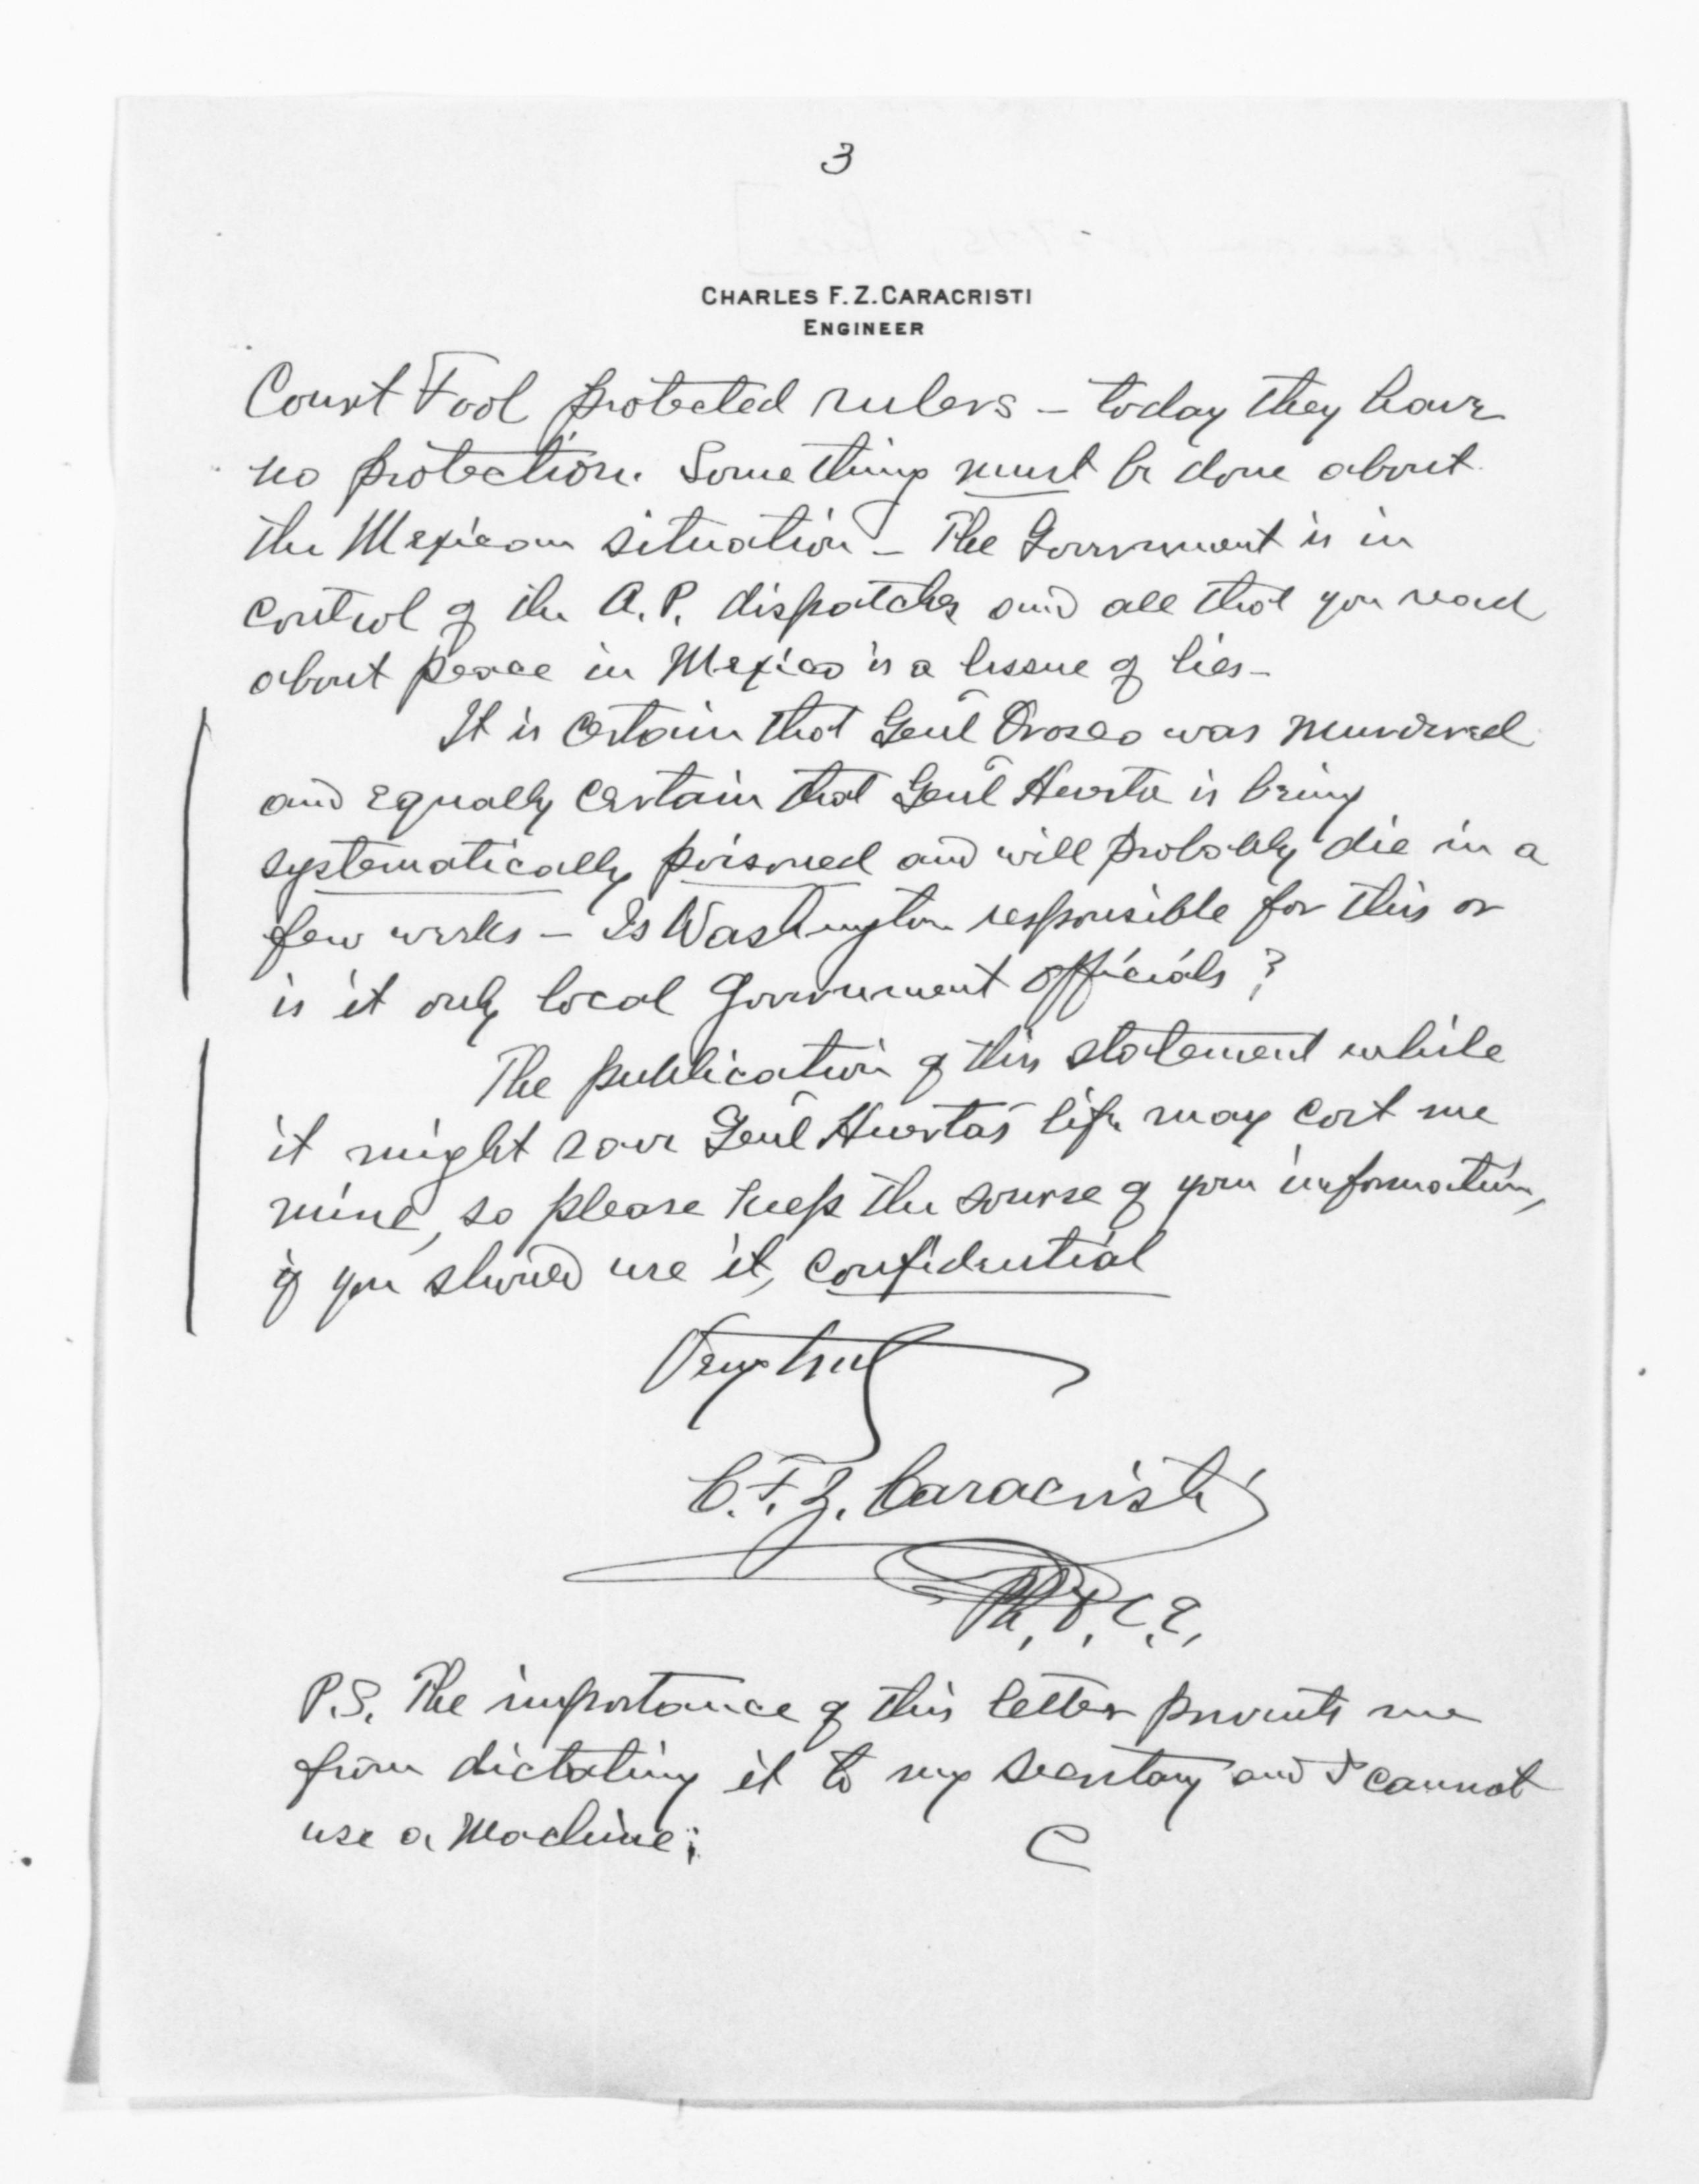 3
CHARLES F. Z. CARACRISTI
ENGINEER
Court Fool protected rulers - today they have
no protection. Something must be done about
the Mexican situation - The Government is in
control of the A.P. dispatches and all that you read
about peace in Mexico is a tissue of lies -
It is certain that Genl Orosco was murdered
and equally certain that Genl Huerta is being
systematically poisoned and will probably die in a
few weeks - Is Washington responsible for this or
is it only local Government officials?
The publication of this statement while
it might save Genl Huerta's life may cost me
mine, so please keep the sourse of your information,
if you should use it, confidential
Very truly
C. F. Z. Caracristi
P.S. The importance of this letter prevents me
from dictating it to my secretary and I cannot
use a Machine;
C